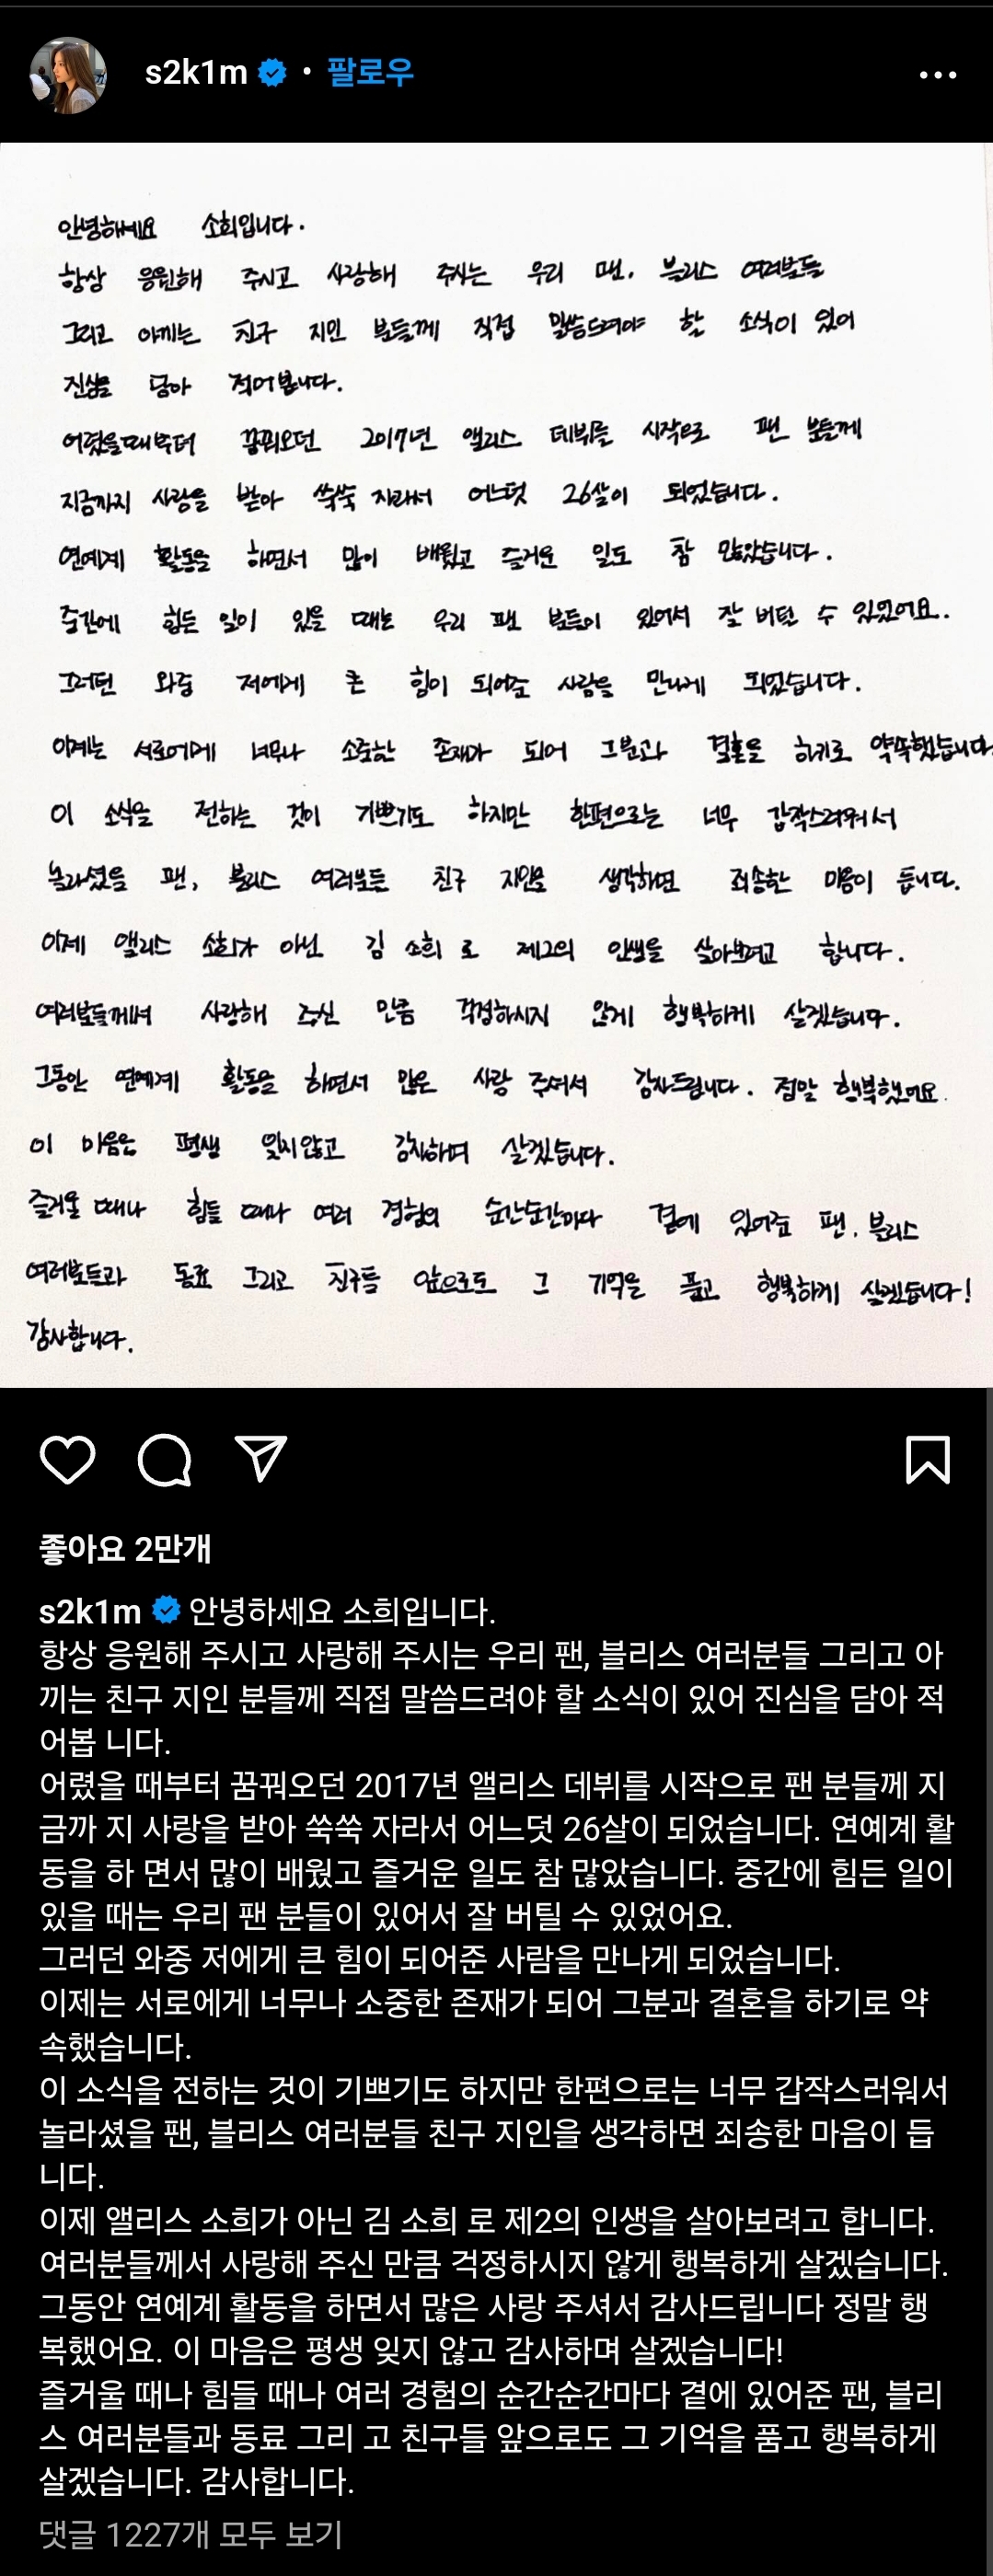 s2k1m • 팔로우
안녕하세요 소희입니다.
항상 응원해 주시고 사랑해 주시는 우리 팬, 블리스 여러분들
그리고 아끼는 친구 지인 분들께 직접 말씀드려야 할 소식이 있어
진심을 담아 적어봅니다.
어렸을때부터 꿈꿔오던 2017년 앨리스 데뷔를 시작으로 팬 분들께
지금까지 사랑을 받아 쑥쑥 자라서 어느덧 26살이 되었습니다.
연예계 활동을 하면서 많이 배웠고 즐거운 일도 참 많았습니다.
중간에 힘든 일이 있을 때는 우리 팬 분들이 있어서 잘 버틸 수 있었어요.
그러던 와중 저에게 큰 힘이 되어준 사람을 만나게 되었습니다.
이제는 서로에게 너무나 소중한 존재가 되어 그분과 결혼을 하기로 약속했습니다.
이 소식을 전하는 것이 기쁘기도 하지만 한편으로는 너무 갑작스러워서
놀라셨을 팬, 블리스 여러분들 친구 지인을 생각하면 죄송한 마음이 듭니다.
이제 앨리스 소희가 아닌 김 소희 로 제2의 인생을 살아보려고 합니다.
여러분들께서 사랑해 주신 만큼 걱정하시지 않게 행복하게 살겠습니다.
그동안 연예계 활동을 하면서 많은 사랑 주셔서 감사드립니다. 정말 행복했어요.
이 마음은 평생 잊지않고 감사하며 살겠습니다.
즐거울 때나 힘들 때나 여러 경험의 순간순간마다 곁에 있어준 팬, 블리스
여러분들과 동료 그리고 친구들 앞으로도 그 기억을 품고 행복하게 살겠습니다!
감사합니다.
좋아요 2만개
s2k1m 안녕하세요 소희입니다.
항상 응원해 주시고 사랑해 주시는 우리 팬, 블리스 여러분들 그리고 아
끼는 친구 지인 분들께 직접 말씀드려야 할 소식이 있어 진심을 담아 적
어봅 니다.
어렸을 때부터 꿈꿔오던 2017년 앨리스 데뷔를 시작으로 팬 분들께 지
금까 지 사랑을 받아 쑥쑥 자라서 어느덧 26살이 되었습니다. 연예계 활
동을 하 면서 많이 배웠고 즐거운 일도 참 많았습니다. 중간에 힘든 일이
있을 때는 우리 팬 분들이 있어서 잘 버틸 수 있었어요.
그러던 와중 저에게 큰 힘이 되어준 사람을 만나게 되었습니다.
이제는 서로에게 너무나 소중한 존재가 되어 그분과 결혼을 하기로 약
속했습니다.
이 소식을 전하는 것이 기쁘기도 하지만 한편으로는 너무 갑작스러워서
놀라셨을 팬, 블리스 여러분들 친구 지인을 생각하면 죄송한 마음이 듭
니다.
이제 앨리스 소희가 아닌 김 소희 로 제2의 인생을 살아보려고 합니다.
여러분들께서 사랑해 주신 만큼 걱정하시지 않게 행복하게 살겠습니다.
그동안 연예계 활동을 하면서 많은 사랑 주셔서 감사드립니다 정말 행
복했어요. 이 마음은 평생 잊지 않고 감사하며 살겠습니다!
즐거울 때나 힘들 때나 여러 경험의 순간순간마다 곁에 있어준 팬, 블리
스 여러분들과 동료 그리 고 친구들 앞으로도 그 기억을 품고 행복하게
살겠습니다. 감사합니다.
댓글 1227개 모두 보기